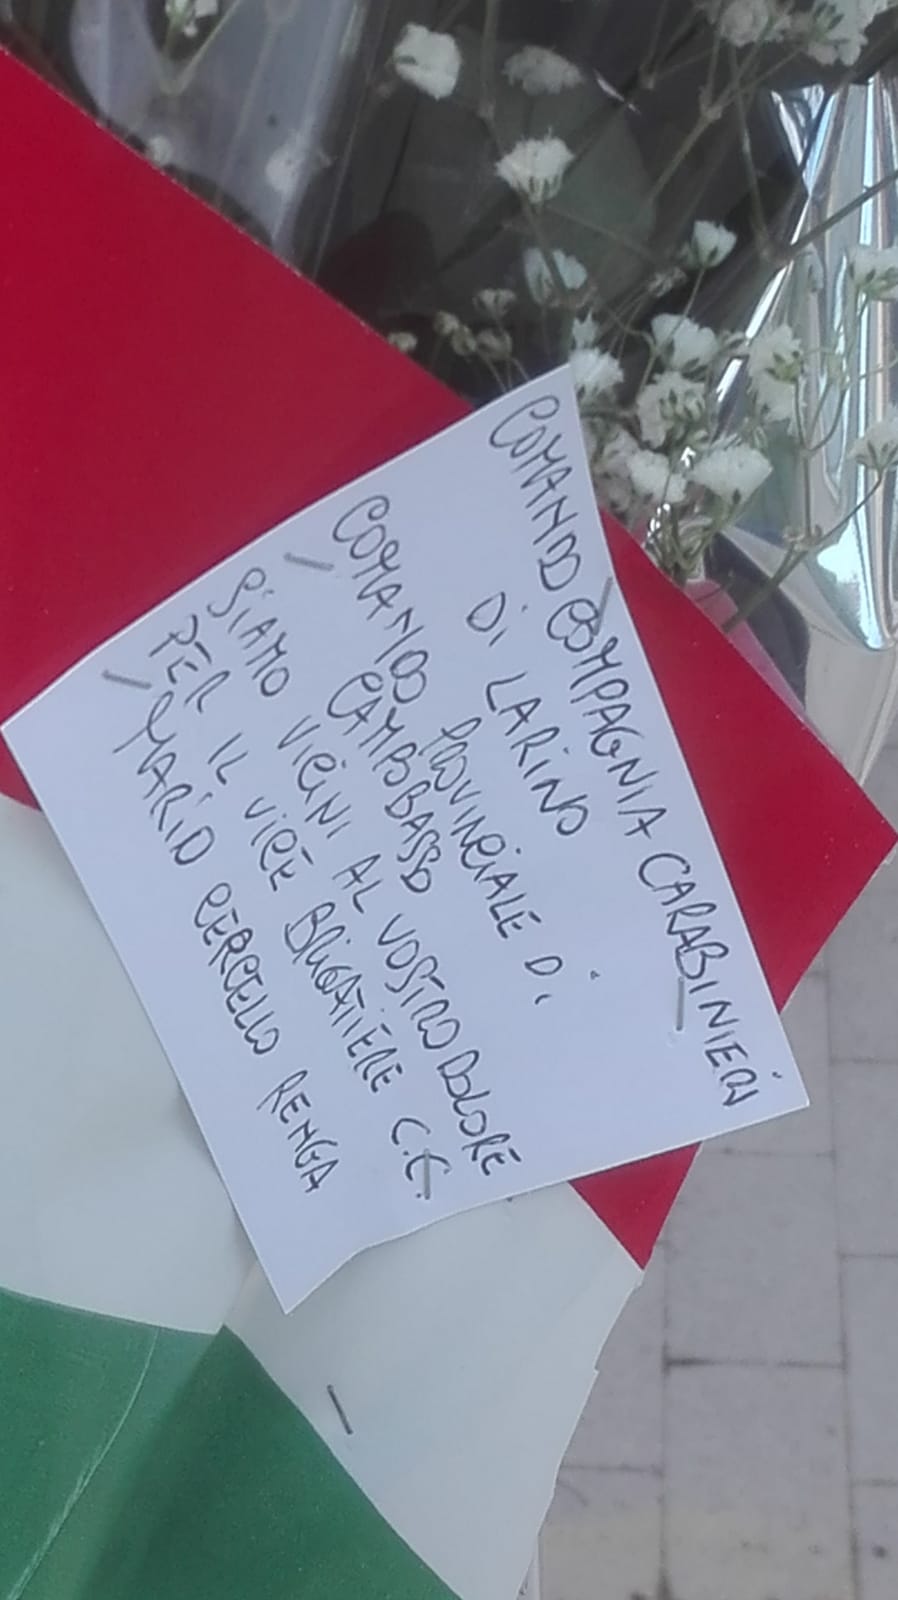 COMANDO COMPAGNIA CARABINIERI
Di LARINO
COMANDO PROVINCIALE Di
CAMPOBASSO
SIAMO VICINI AL VOSTRO DOLORE
PER IL VICE BRIGATIERE C.C.
MARIO CERCELLO RENGA